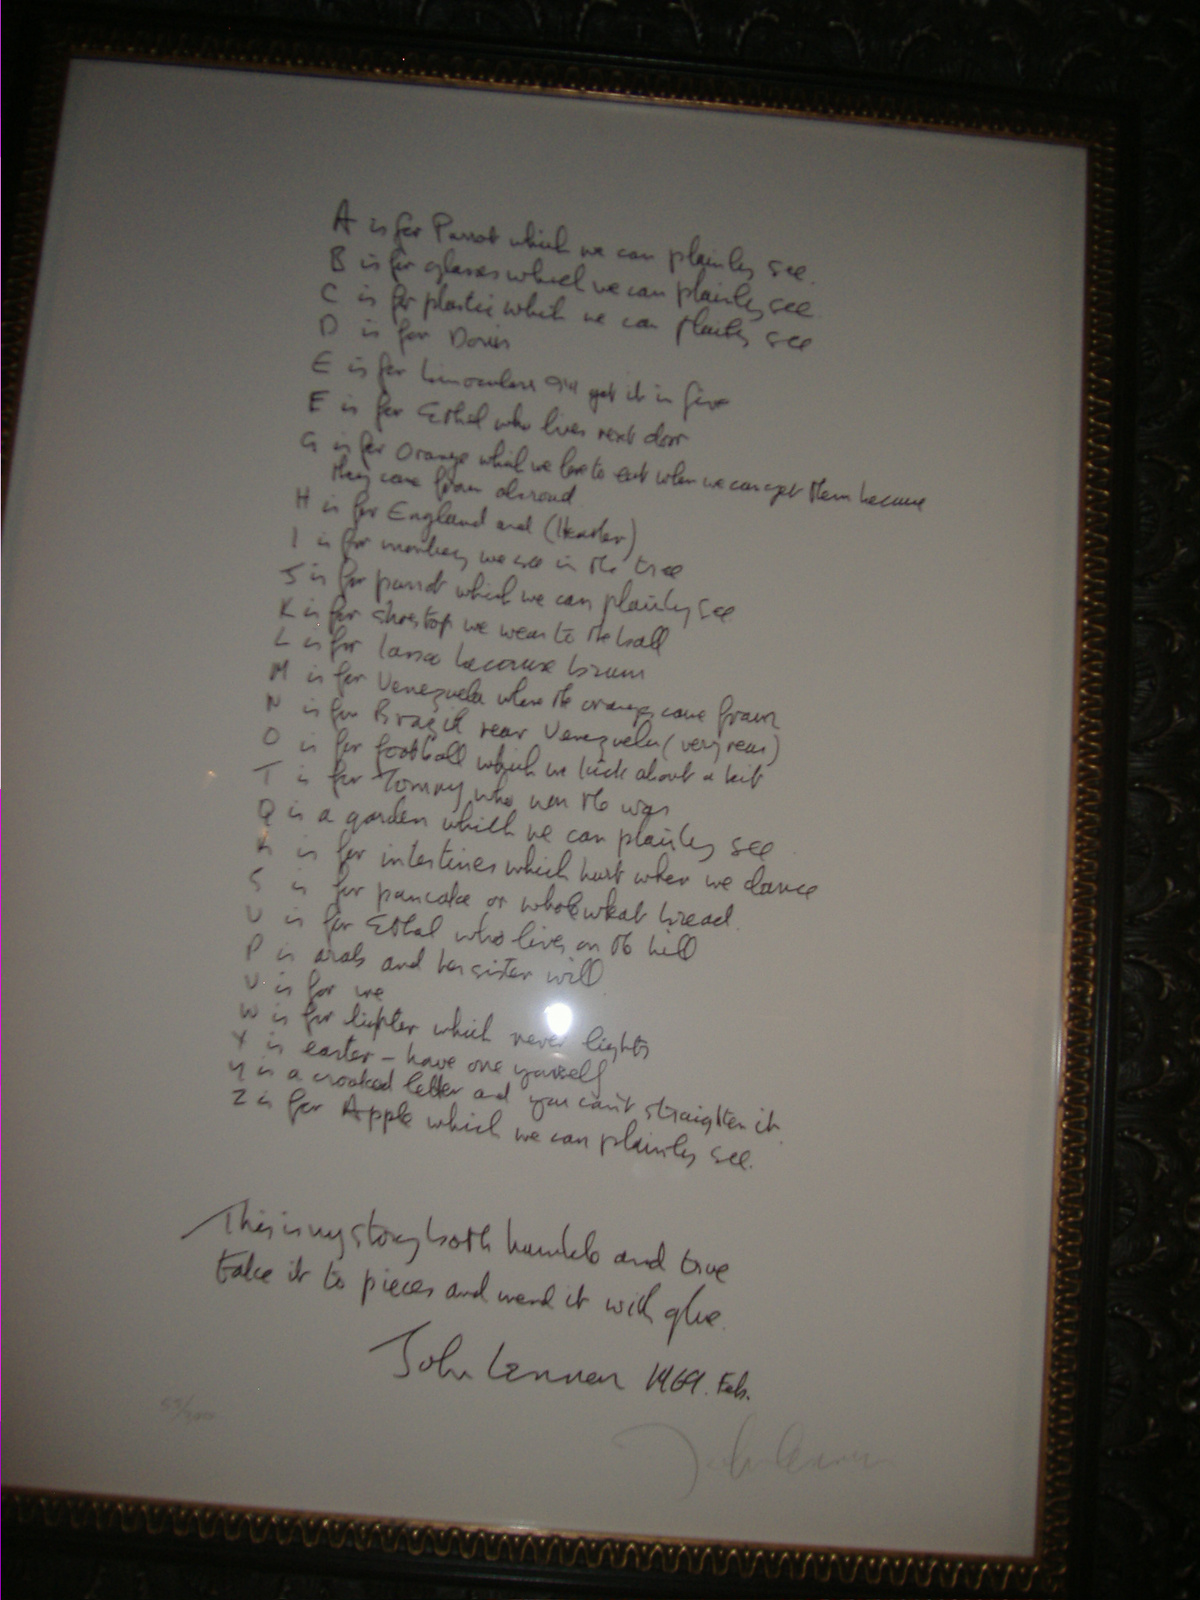 A is for Parrot which we can plainly see.
B is for glasses which we can plainly see
C is for plastic which we can plainly see
D is for Doris
E is for binoculars I'll get it in five
E is for Ethel who lives next door
G is for Orange which we love to eat when we can get them because
they come from abroad
H is for England and (Heather)
I is for monkey we see in the tree
J is for parrot which we can plainly see
K is for shoetop we wear to the ball
L is for lasso because brown
M is for Venezuela where the oranges come from
N is for Brazil near Venezuela (very near)
O is for football which we kick about a bit
T is for Tommy who won the war
Q is a garden which we can plainly see
R is for intestines which hurt when we dance
S is for pancake or wholewheat bread.
U is for Ethel who lives on the hill
P is arab and her sister will
V is for me
W is for lighter which never lights
X is easter - have one yourself
Y is a crooked letter and you can't straighten it
Z is for Apple which we can plainly see.
This is my story both humble and true
take it to pieces and mend it with glue.
John Lennon 1969. Feb.
John Lennon